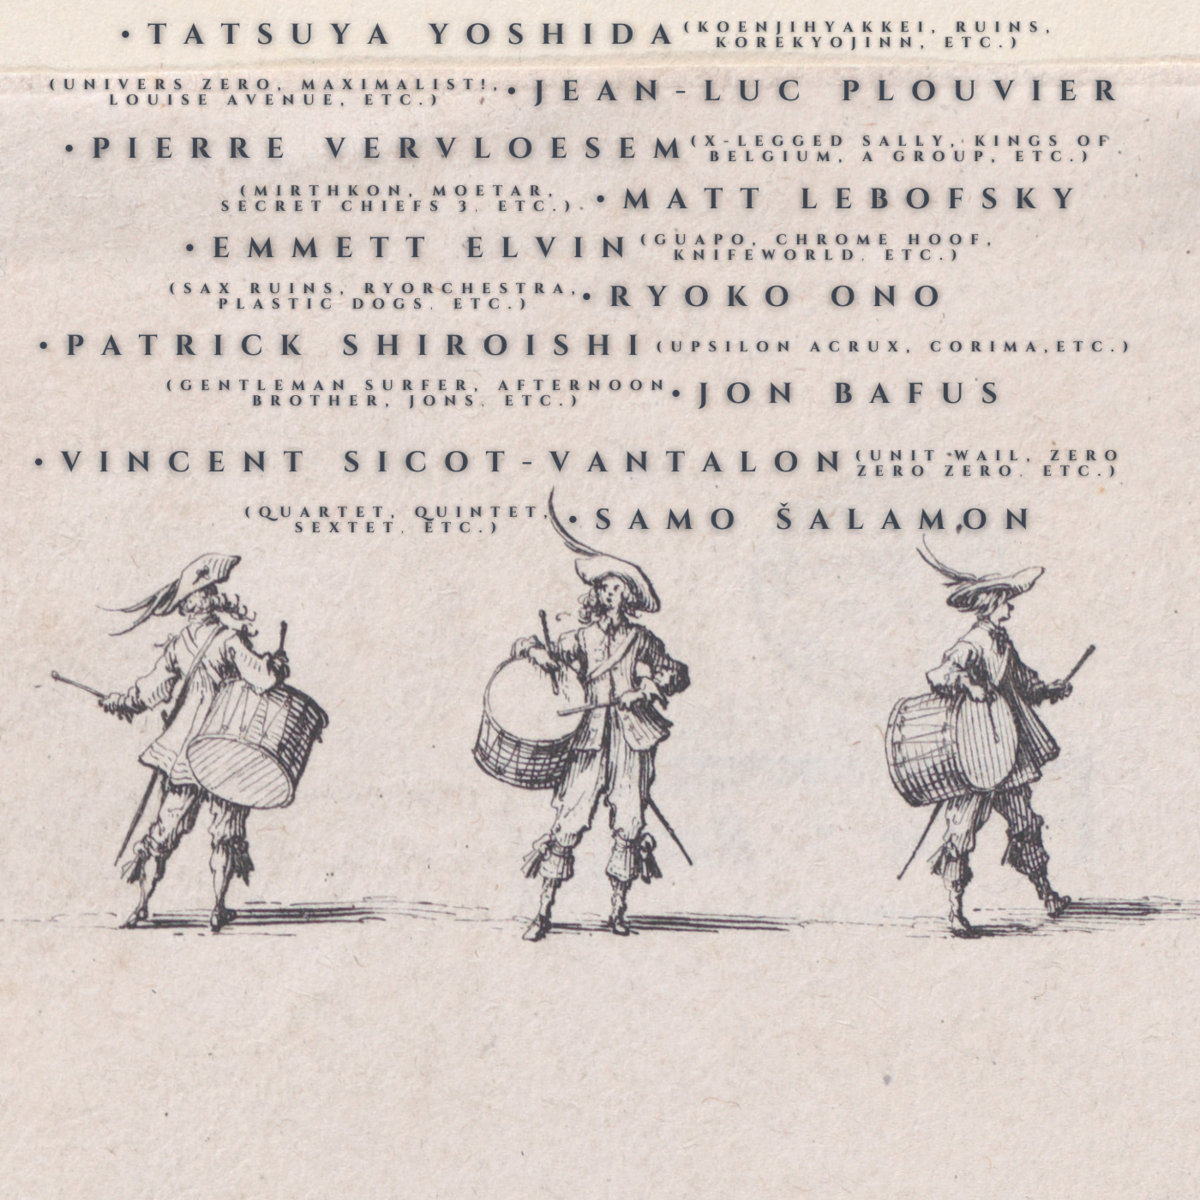 • TATSUYA YOSHIDA (KOENJIHYAKKEI, RUINS,
KOREKYOJINN, ETC.)
(UNIVERS ZERO, MAXIMALIST!,
LOUISE AVENUE, ETC.) • JEAN-LUC PLOUVIER
• PIERRE VERVLOESEM (X-LEGGED SALLY, KINGS OF
BELGIUM, A GROUP, ETC.)
(MIRTHKON, MOETAR,
SECRET CHIEFS 3, ETC.) • MATT LEBOFSKY
• EMMETT ELVIN (GUAPO, CHROME HOOF,
KNIFEWORLD, ETC.)
(SAX RUINS, RYORCHESTRA,
PLASTIC DOGS, ETC.) • RYOKO ONO
• PATRICK SHIROISHI (UPSILON ACRUX, CORIMA,ETC.)
(GENTLEMAN SURFER, AFTERNOON
BROTHER, JONS, ETC.) • JON BAFUS
• VINCENT SICOT-VANTALON (UNIT WAIL, ZERO
ZERO ZERO, ETC.)
(QUARTET, QUINTET,
SEXTET, ETC.) • SAMO ŠALAMON